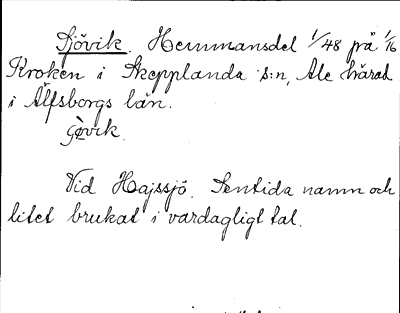 Sjövik. Hemmansdel 1/48 på 1/16
Kroken i Skepplanda s:n, Ale härad
i Älfsborgs län.
Vid Hajssjö. Sentida namn och
litet brukat i vardagligt tal.